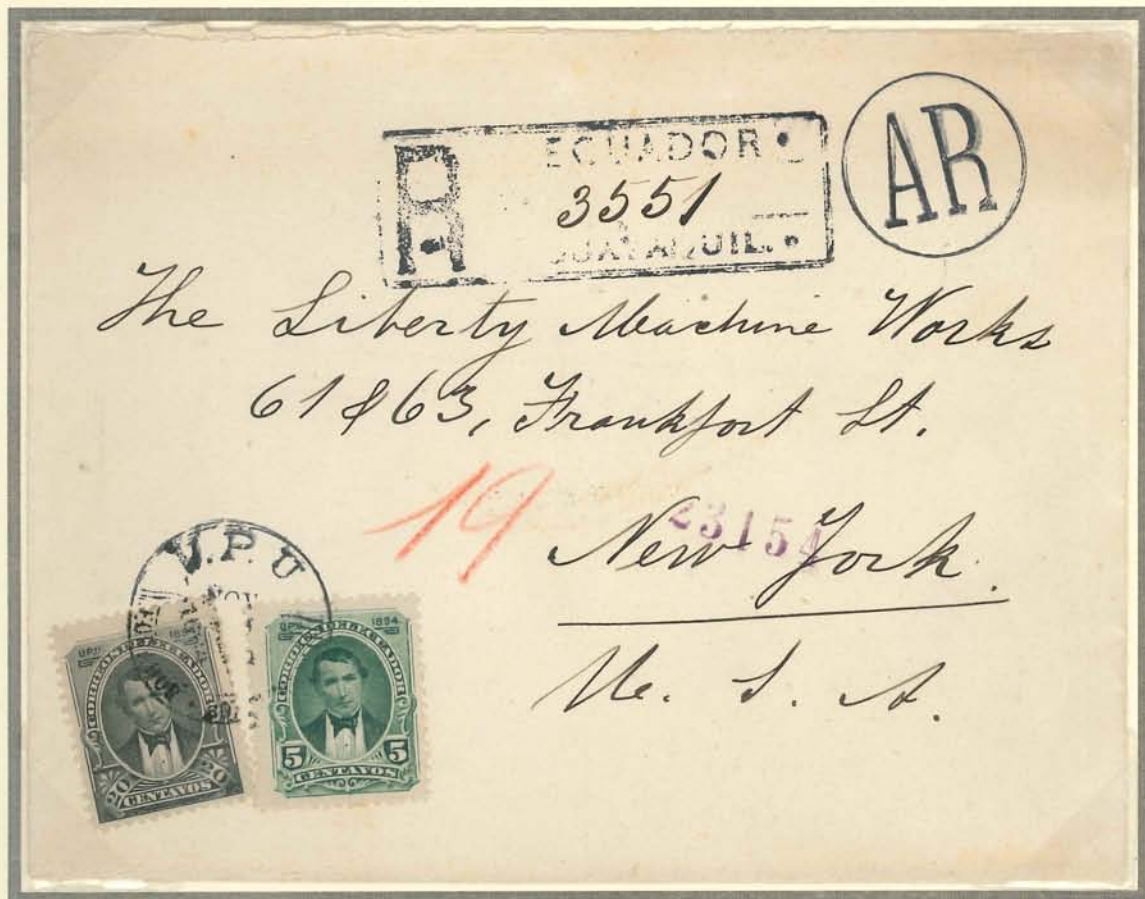 R
ECUADOR
3551
GUAYAQUIL.
AR
The Liberty Machine Works
61 & 63, Frankfort St.
19
23154
New York.
U. S. A.
U.P.U
NOV
1894
CORREOS DEL ECUADOR
20 20
CENTAVOS
UPU 1894
CORREOS DEL ECUADOR
5 5
CENTAVOS